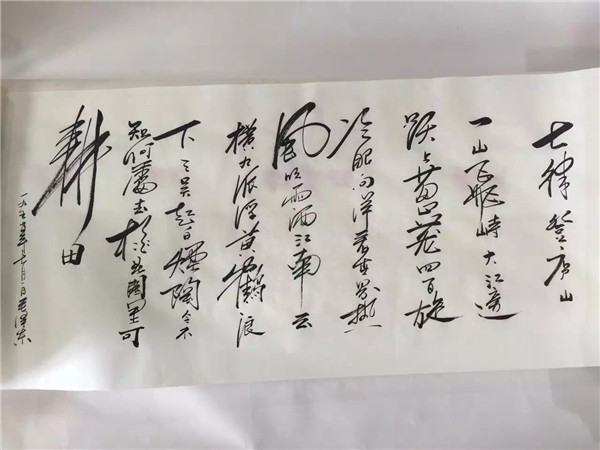 七律登庐山
一山飞峙大江边
跃上葱茏四百旋
冷眼向洋看世界热
风吹雨洒江南云
横九派浮黄鶴浪
下三吴起白煙陶令不
知何處去桃花園里可
耕田
一九 年 月一日毛泽东